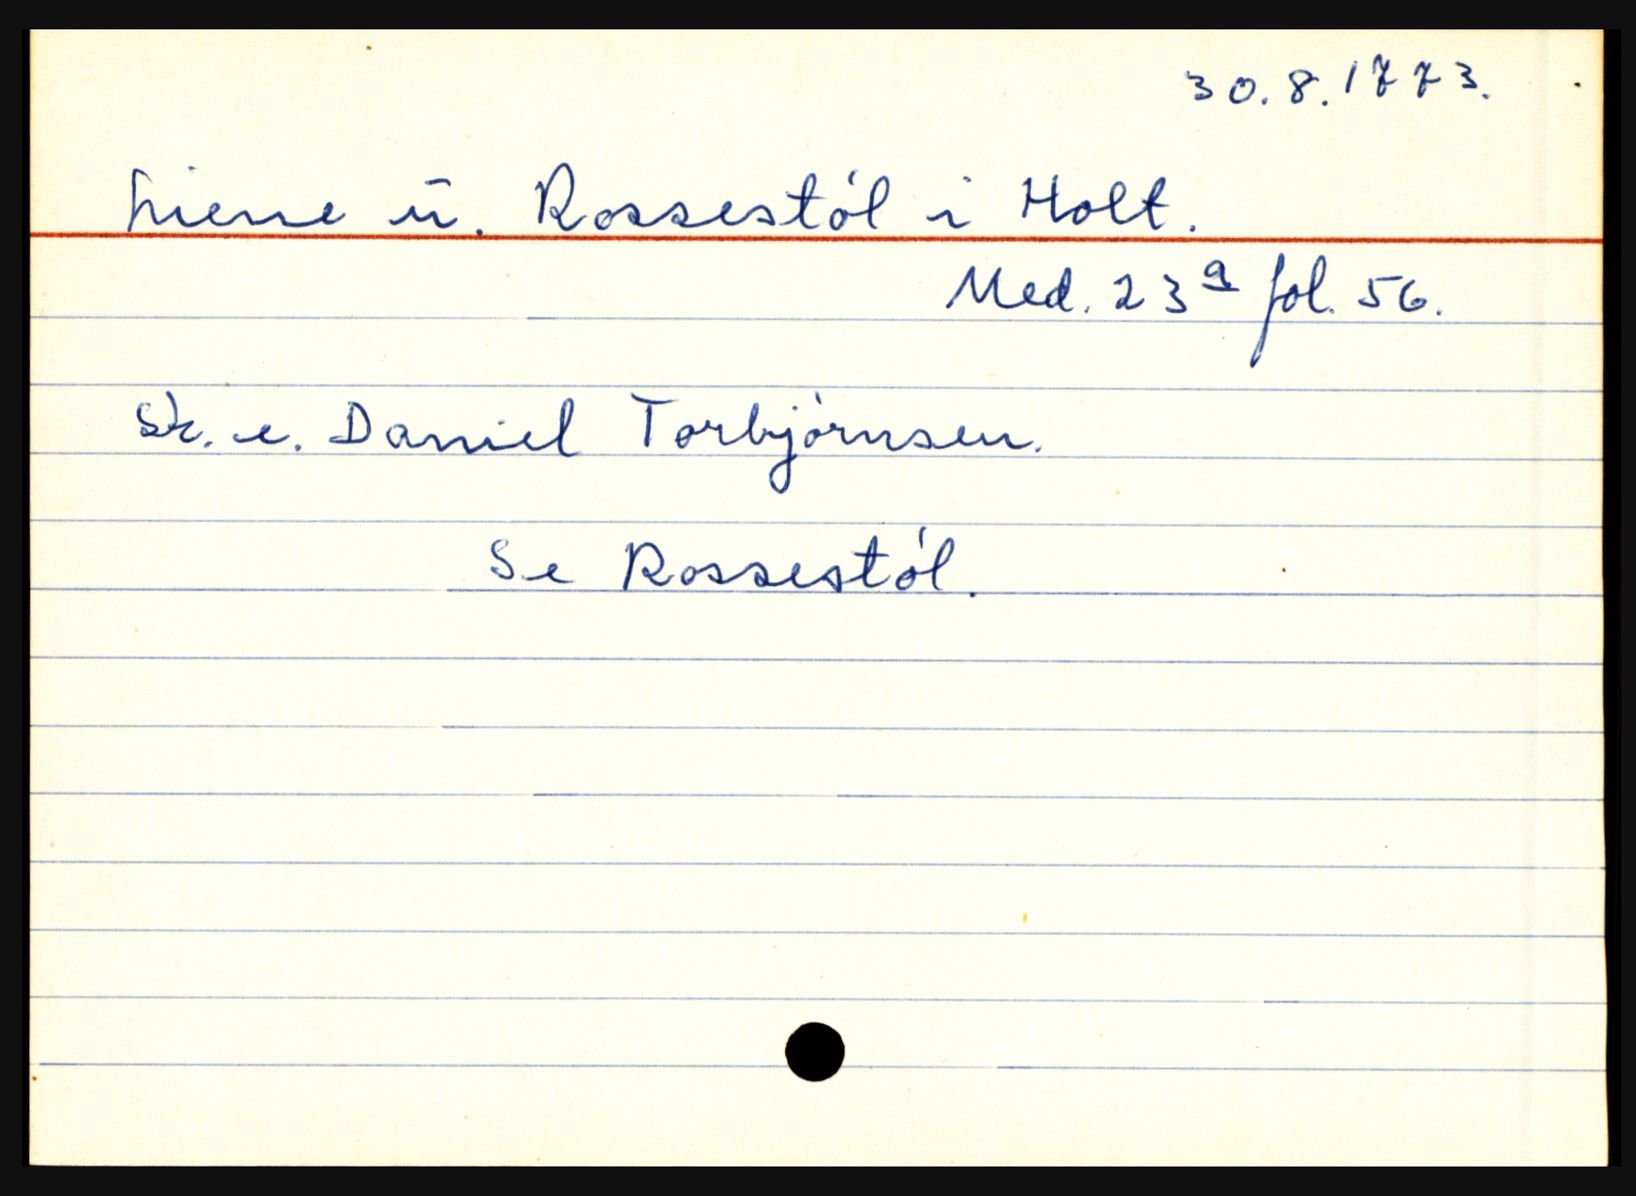 30.8.1773.
Liene u. Rossestøl i Holt.
Med. 23a fol. 56.
Sk. e. Daniel Torbjørnsen.
Se Rossestøl.